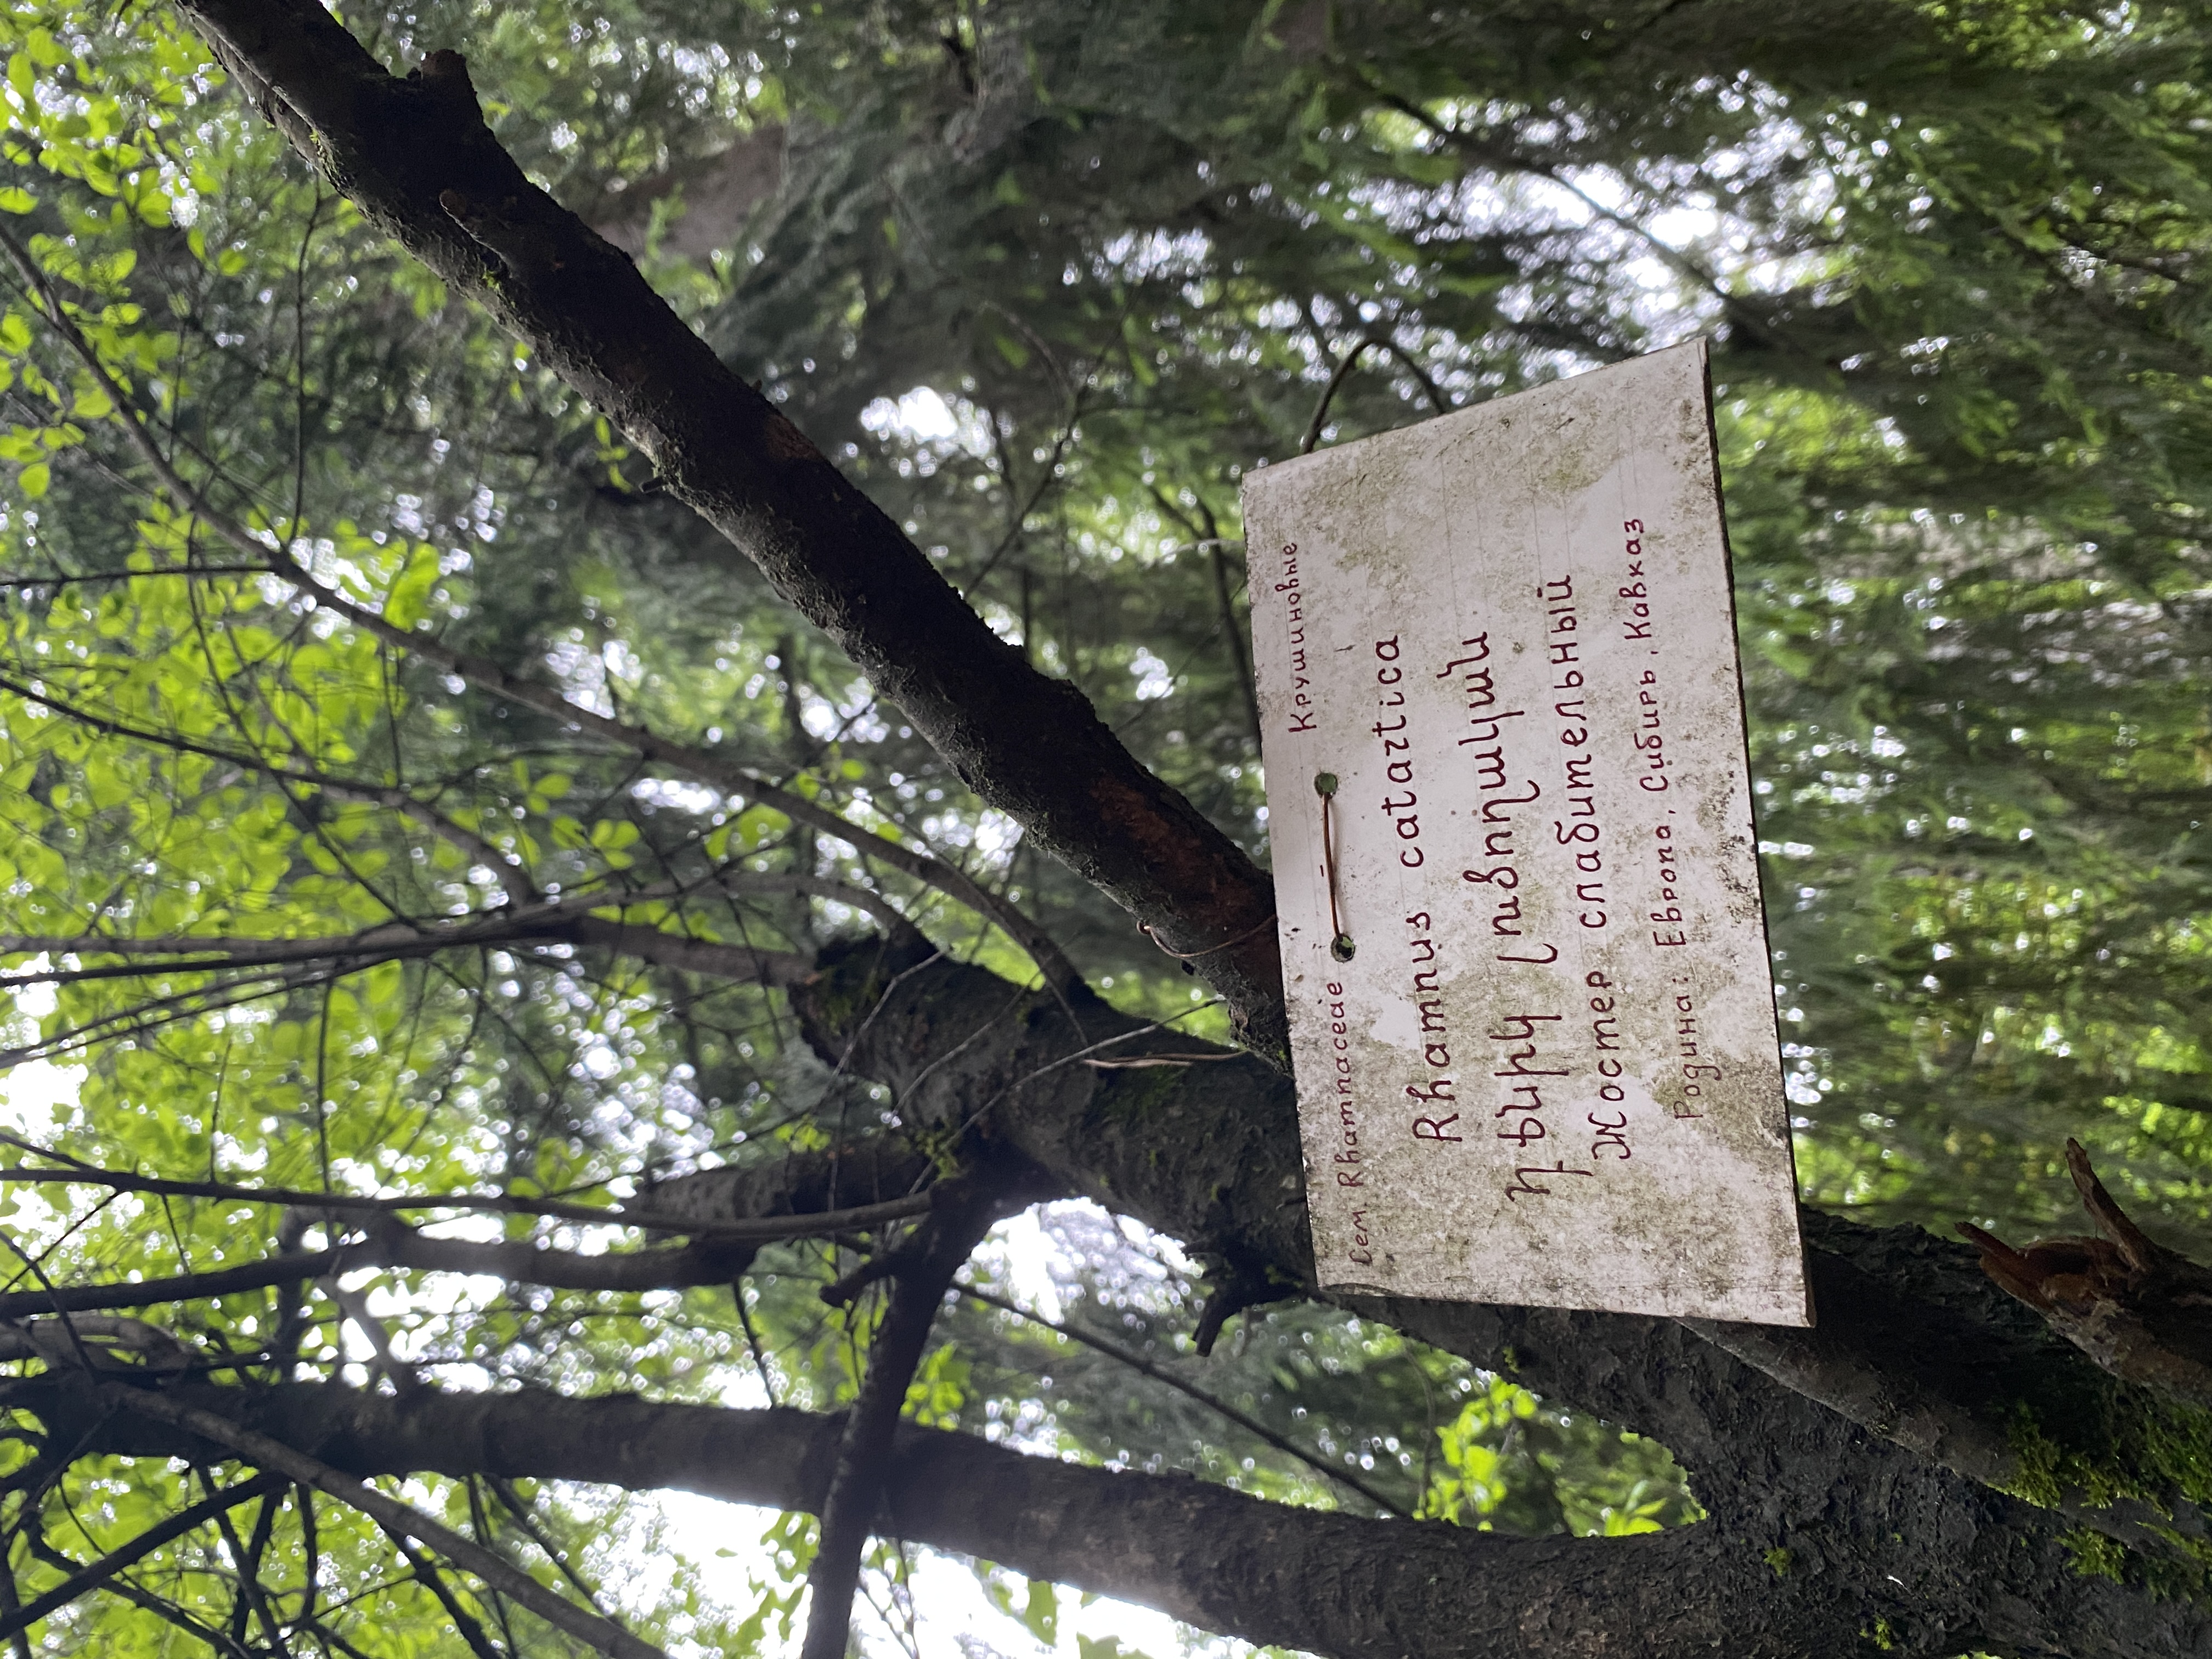 Сем. Rhamnaceae Крушиновые
Rhamnus catartica
Դժնիկ լուծողական
Жостер слабительный
Родина: Европа, Сибирь, Кавказ